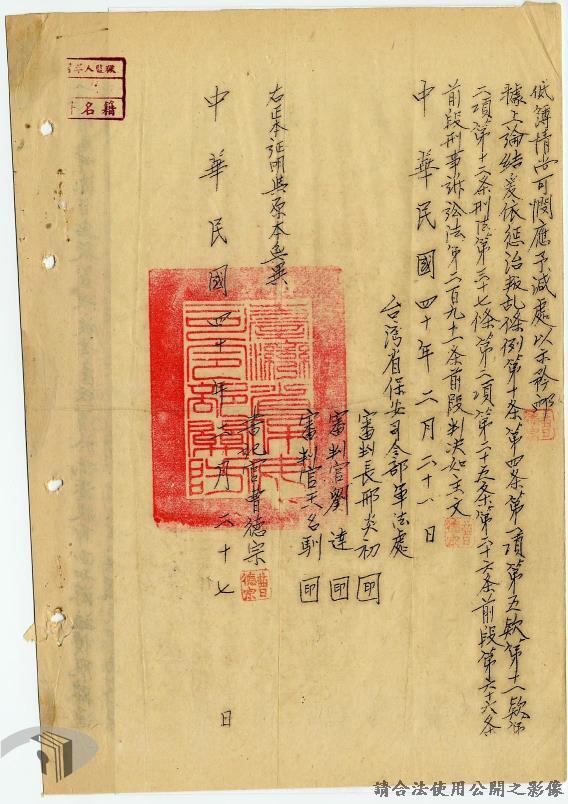 低薄情尚可憫應予減處以示矜卹
據上論結爰依懲治叛乱條例第十条第四条第一項第五款第十一款第
二項第十二条刑法第三十七條第二項第二十五条第二十六条前段第六十六条
前段刑事訴訟法第二百九十一条前段判决如主文
中華民國四十年二月二十一日
台湾省保安司令部軍法處
審判長邢炎初 印
審判官劉達 印
審判官王名馴 印
右正本証明與原本無異
書記官曾德宗
中華民國四十年 月二十七日
名籍
請合法使用公開之影像